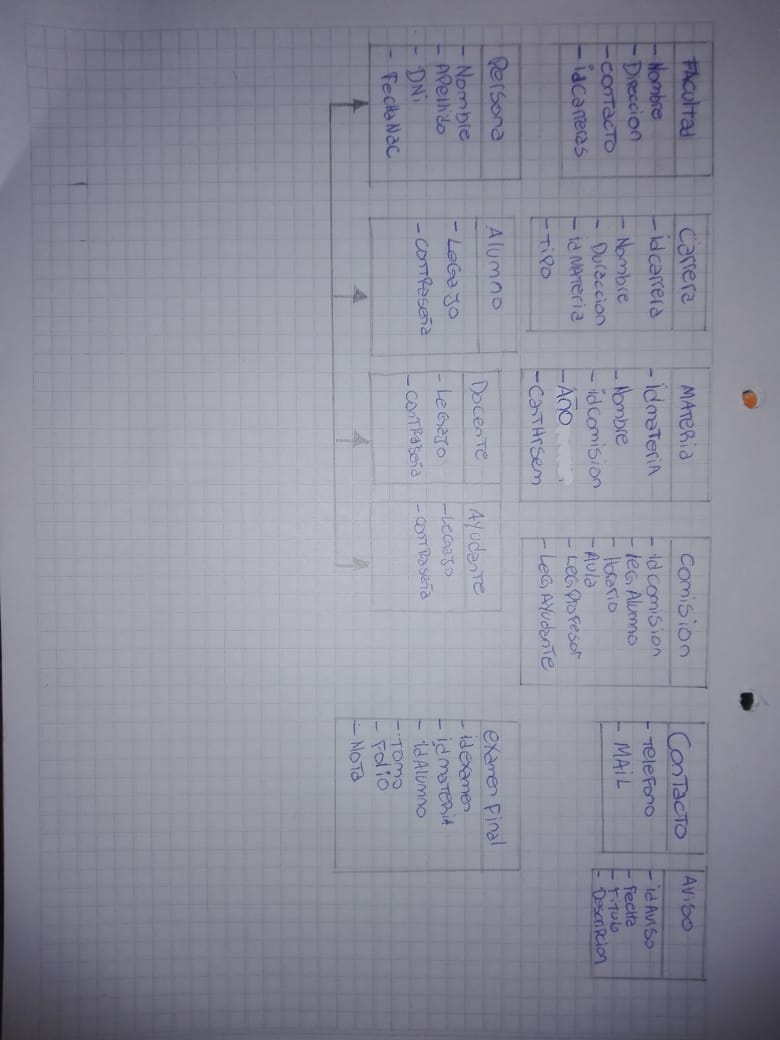 FAcultad
- Nombre
- Direccion
- contacto
- idCarreras
Carrera
- idcarrera
- Nombre
- Duraccion
- id MATeria
- Tipo
MATeria
- IdmateriA
- Nombre
- idcomision
- AÑO
- CantHrSem
Comision
- Id comision
- leg Alumno
- Horario
- Aula
- Leg Profesor
- Leg Ayudante
Contacto
- Telefono
- MAIL
Aviso
- id Aviso
- Fecha
- Titulo
- Descripcion
Persona
- Nombre
- Apellido
- DNi
- FechaNac
Alumno
- Legajo
- contraseña
Docente
- Legajo
- contraseña
Ayudante
- Legajo
- contraseña
examen Final
- idexamen
- id materiA
- id Alumno
- Tomo
- Folio
- Nota